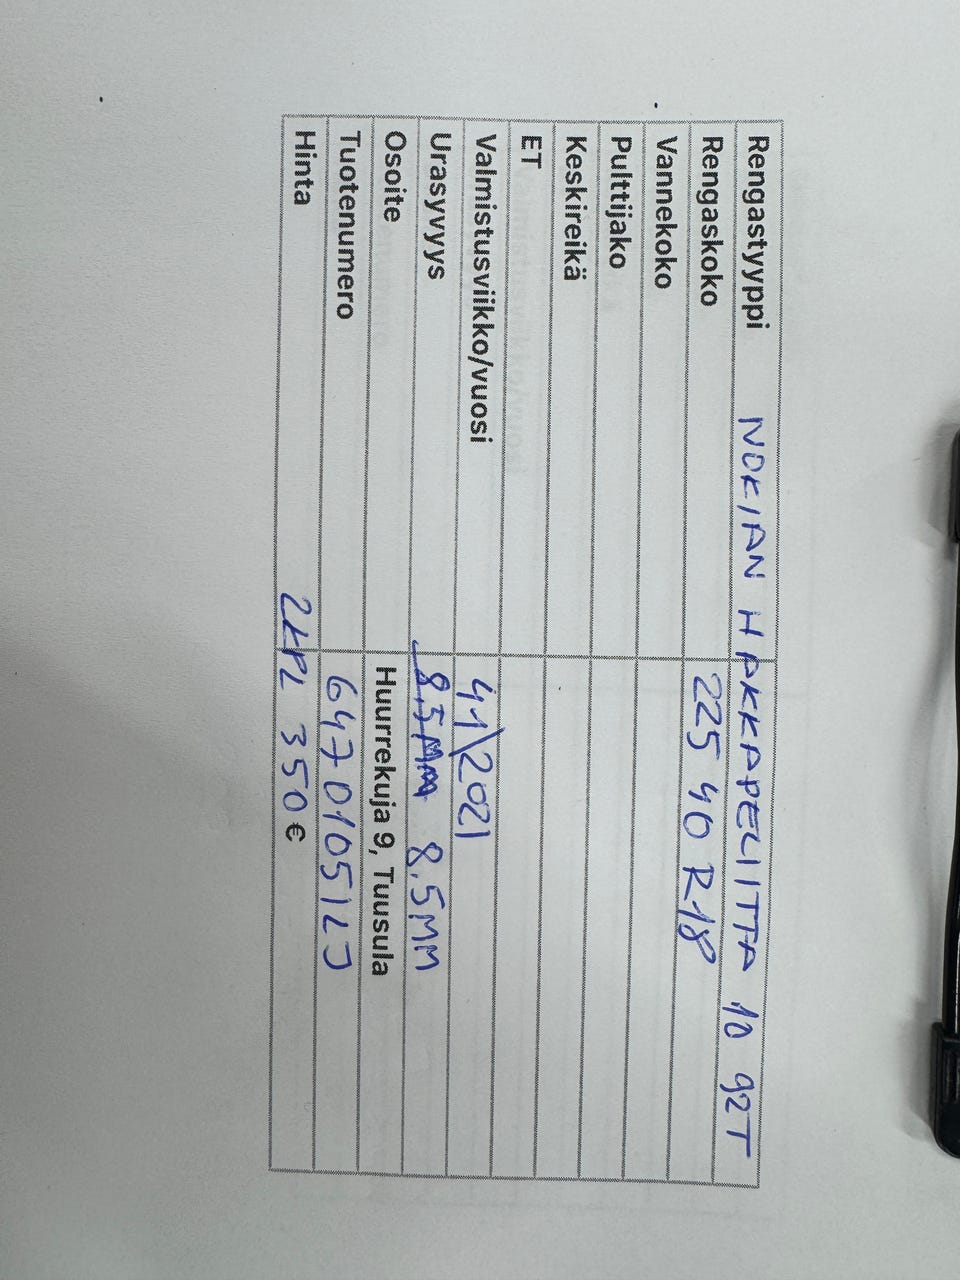 Rengastyyppi NOKIAN HAKKAPELIITTA 10 92T
Rengaskoko 225 40 R18
Vannekoko
Pulttijako
Keskireikä
ET
Valmistusviikko/vuosi 41/2021
Urasyvyys 8,5MM 8,5MM
Osoite Huurrekuja 9, Tuusula
Tuotenumero 647010512J
Hinta 2KPL 350 €